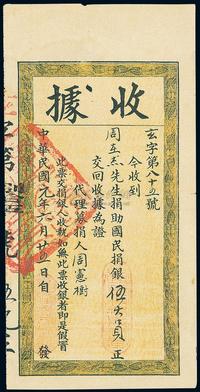 收據
玄字第八十五號
今收到
周五杰先生捐助國民捐銀伍大員正
交回收據為證
代理募捐人周憲樹
此票交捐銀人收執如無此票收銀者即是假冒
中華民國元年六月廿五日自發